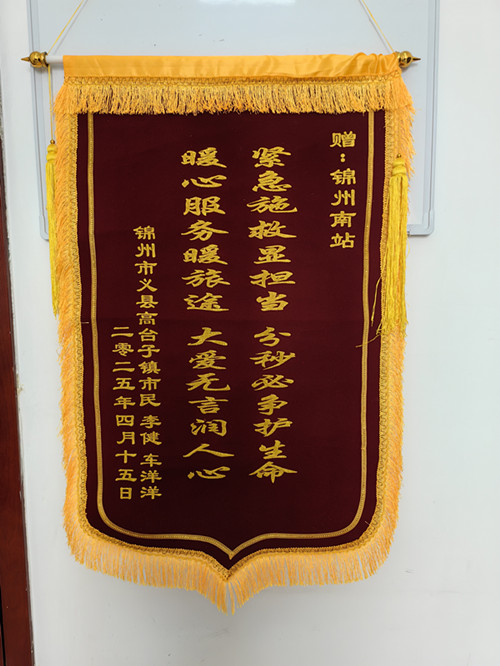 赠：锦州南站
紧急施救显担当 分秒必争护生命
暖心服务暖旅途 大爱无言润人心
锦州市义县高台子镇市民 李健 车洋洋
二零二五年四月十五日